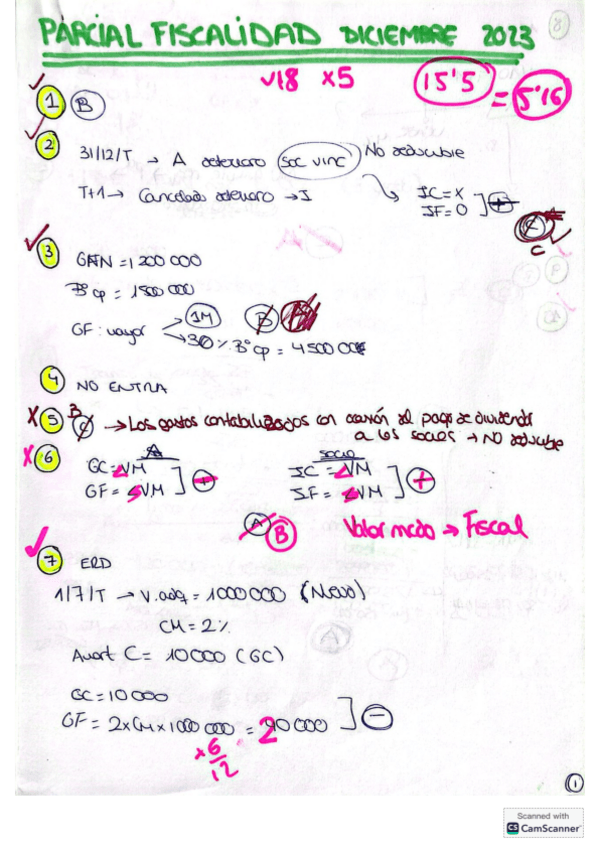 PARCIAL FISCALIDAD DICIEMBRE 2023
8
√18 x5 15'5 = 5'16
1 B
2 31/12/T → A deterioro (Soc vinc) No deducible
T+1 → Cancelado deterioro → I IC = X
IF = 0 ] +
C
3 GFN = 1 200 000
Bº op = 1500 000
GF: mayor → 1M B
→ 30% Bº op = 4500 00
4 NO ENTRA
X 5 B → Los gastos contabilizados con ocasión al pago de dividendos
a los socios → NO deducible
X 6 A socio
GC = VM IC = VM
GF = VM ] + IF = VM ] +
A B Valor mcdo → Fiscal
7 ERD
1/7/T → V. adq = 1000 000 (Nuevo)
CM = 2%
Amort C = 10 000 (GC)
GC = 10 000
GF = 2xCMx1000 000 = 20 000 ] -
x 6/12
1
Scanned with
CS CamScanner